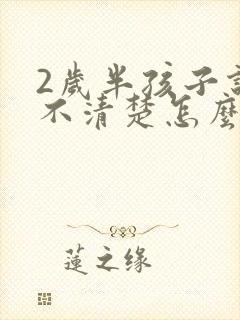 2歲半孩子
不清楚怎麼
蓮之缘